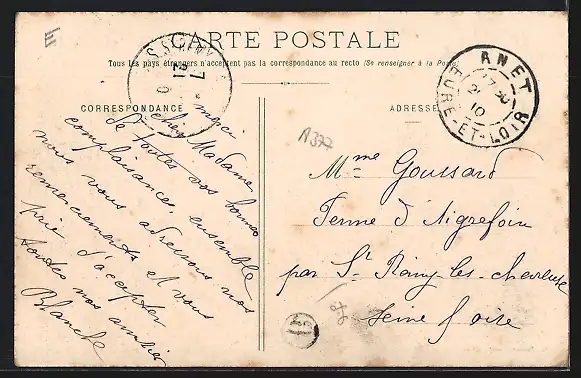 CARTE POSTALE
Tous les pays étrangers n'acceptent pas la correspondance au recto (Se renseigner à la Poste)
CORRESPONDANCE
ADRESSE
ANET
17 30
21
10
EURE-ET-LOIR
A377
merci
chère Madame
de toutes vos bonnes
complaisances, ensemble
nous vous adressons nos
remerciements et vous
prie d'accepter
toutes nos amitiés
Blanche
Mme Goussard
Ferme d'Aigrefoin
par St Rémy-les-Chevreuse
Seine Oise